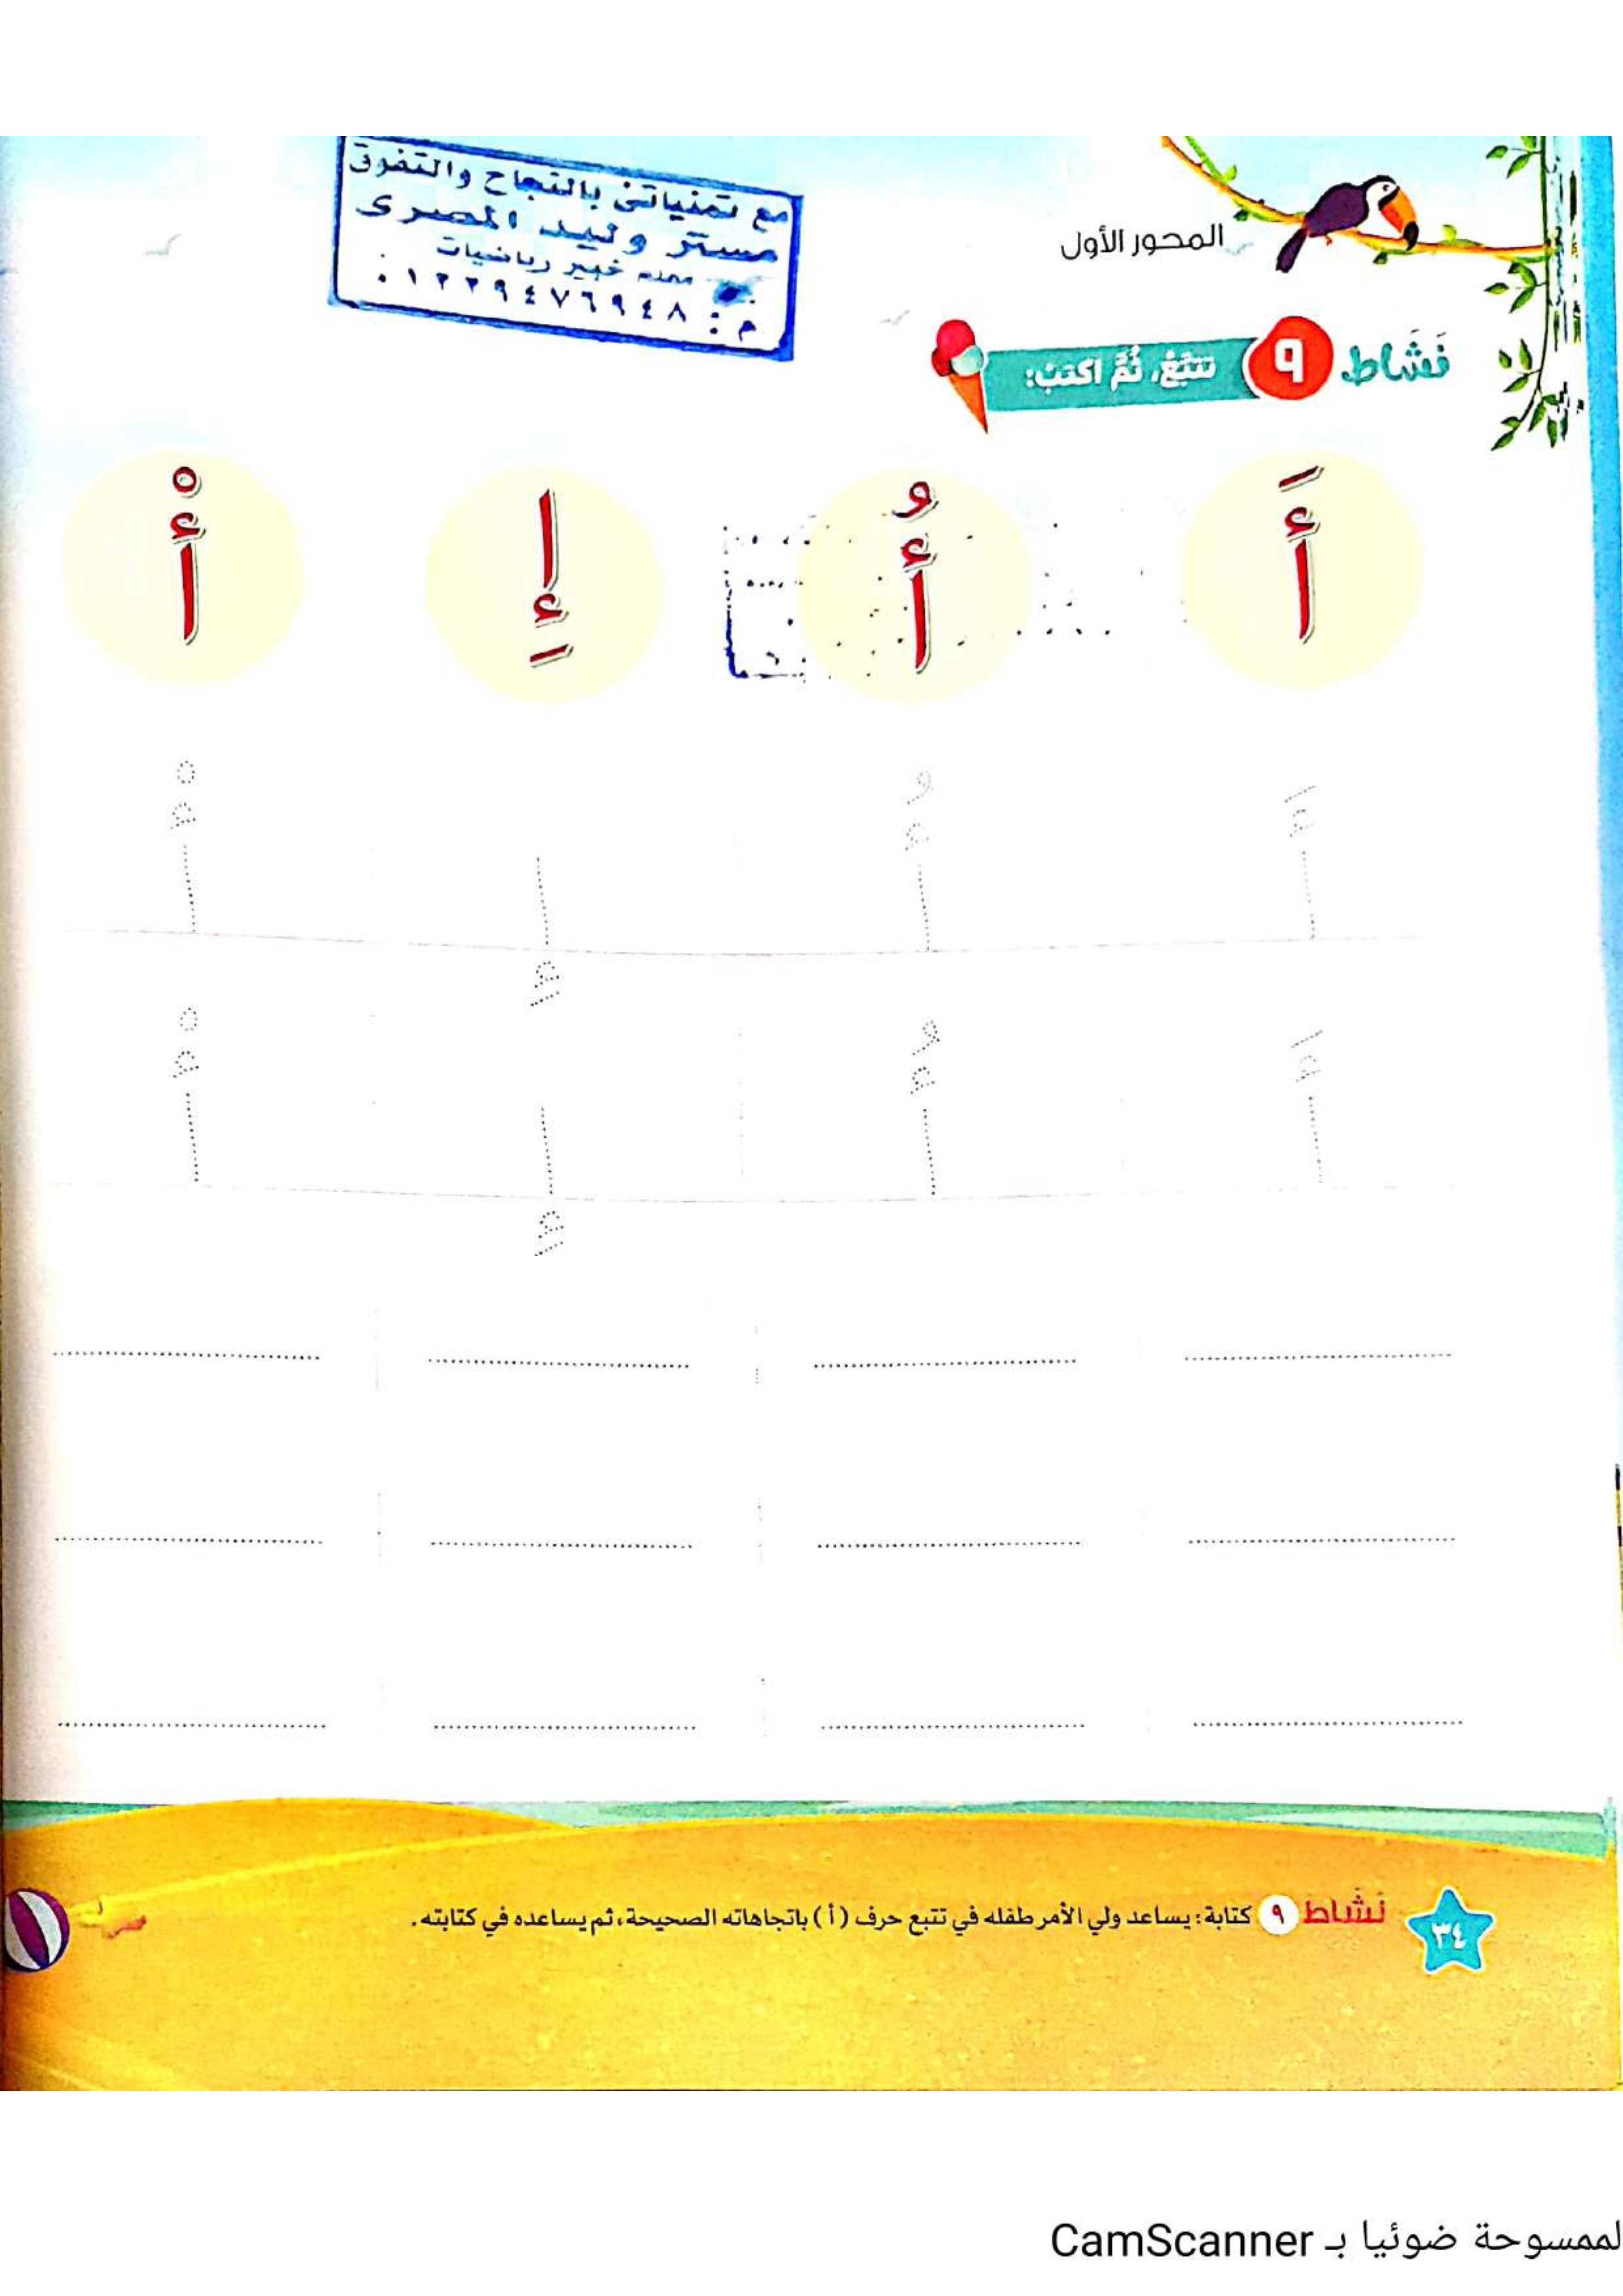 مع تمنياتى بالنجاح والتفوق
مستر وليد المصرى
معلم خبير رياضيات
م : ٠١٢٢٩٤٧٦٩٤٨
المحور الأول
نَشَاط ٩ تتبَّعْ، ثُمَّ اكتب:
أَ أُ إِ أْ
أَ أُ إِ أْ
أَ أُ إِ أْ
٣٤ نَشَاط ٩ كتابة: يساعد ولي الأمر طفله في تتبع حرف (أ) باتجاهاته الصحيحة، ثم يساعده في كتابته.
لممسوحة ضوئيا بـ CamScanner